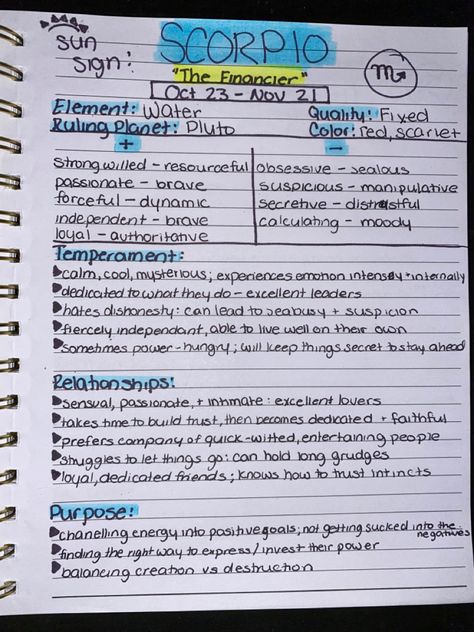 sun SCORPIO
sign: "The Financier" ♏
Oct 23 - Nov 21
Element: Water Quality: Fixed
Ruling Planet: Pluto Color: red, scarlet
+ -
strong willed - resourceful obsessive - jealous
passionate - brave suspicious - manipulative
forceful - dynamic secretive - distrustful
independent - brave calculating - moody
loyal - authoritative
Temperament:
calm, cool, mysterious; experiences emotion intensely + internally
dedicated to what they do - excellent leaders
hates dishonesty: can lead to jealousy + suspicion
fiercely independant, able to live well on their own
sometimes power-hungry; will keep things secret to stay ahead
Relationships:
sensual, passionate, + intimate: excellent lovers
takes time to build trust, then becomes dedicated + faithful
prefers company of quick-witted, entertaining people
struggles to let things go: can hold long grudges
loyal, dedicated friends; knows how to trust intincts
Purpose:
chanelling energy into positive goals; not getting sucked into the negatives
finding the right way to express/invest their power
balancing creation vs destruction